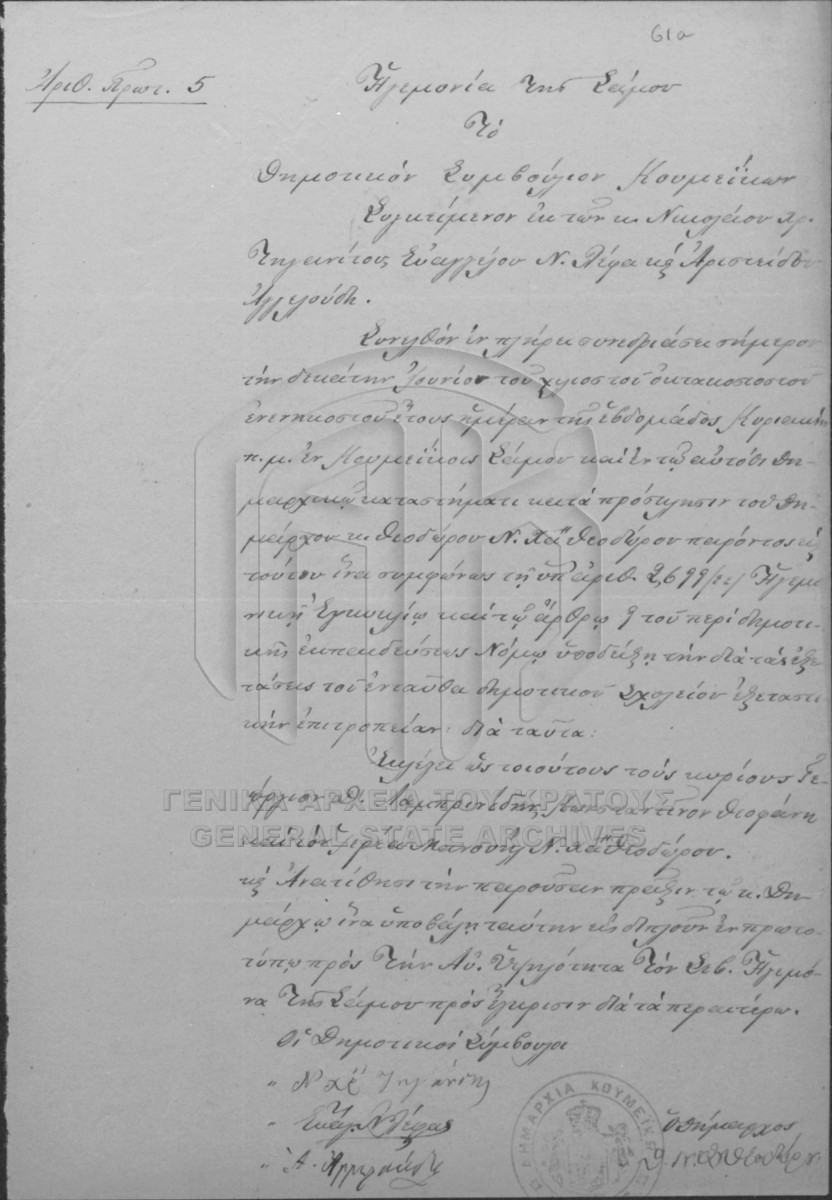 61α
Ἀριθ. Πρωτ. 5
Ἡγεμονία τῆς Σάμου
Τὸ
Δημοτικόν Συμβούλιον Κουμεΐκων
Συγκείμενον ἐκ τῶν κ. Νικολάου Χρ.
Εὐαγγέλου Ν. Λέφα κὶ Ἀριστείδου
Ἀγγελούδη.
Συνελθόν ἐν πλήρει συνεδριάσει σήμερον
τὴν δεκάτην Ἰουνίου τοῦ χιλιοστοῦ ὀκτακοσιοστοῦ
ἐνενηκοστοῦ ἔτους ἡμέραν τῆς ἑβδομάδος Κυριακὴν
π.μ. ἐν Κουμεΐκοις Σάμου καὶ ἐν τῷ αὐτόθι Δη-
μαρχικῷ καταστήματι κατὰ πρόσκλησιν τοῦ Δη-
μάρχου κ. Θεοδώρου Ν. Χ΄΄Θεοδώρου παρόντος κὶ
τούτου ἵνα συμφώνως τῇ ὑπ' ἀριθ. 2,699 Ἡγεμο
νικῇ Ἐγκυκλίῳ καὶ τῷ ἄρθρῳ 9 τοῦ περὶ δημοτι-
κῆς ἐκπαιδεύσεως Νόμῳ ὑποδείξῃ τὴν διὰ τὰς ἐξε-
τάσεις τοῦ ἐνταῦθα δημοτικοῦ Σχολείου ἐξεταστι-
κὴν ἐπιτροπείαν· διὰ ταῦτα:
Ἐκλέγει ὡς τοιούτους τοὺς κυρίους Γε-
ώργιον Θ. Λαμπρινίδην, Κωνσταντῖνον Θεοφάνη
καὶ τὸν ἱερέα Μανουὴλ Ν. Χ΄΄Θεοδώρου.
κὶ Ἀνατίθησι τὴν παροῦσαν πρᾶξιν τῷ κ. Δη-
μάρχῳ ἵνα ὑποβάλῃ ταύτην εἰς διπλοῦν ἐν πρωτο-
τύπῳ πρὸς Τὴν Αὐ. Ὑψηλότητα Τὸν Σεβ. Ἡγεμό-
να Τῆς Σάμου πρὸς ἔγκρισιν διὰ τὰ περαιτέρω.
Οἱ Δημοτικοί Σύμβουλοι
Ν Χρ
Εὐάγ. Ν Λέφας
Ἀ. Ἀγγελούδης
Ὁ δήμαρχος
Θ. Ν. Χ΄΄Θεοδώρου
ΔΗΜΑΡΧΙΑ ΚΟΥΜΕΪΚΩ
ΓΕΝΙΚΑ ΑΡΧΕΙΑ ΤΟΥ ΚΡΑΤΟΥΣ
GENERAL STATE ARCHIVES